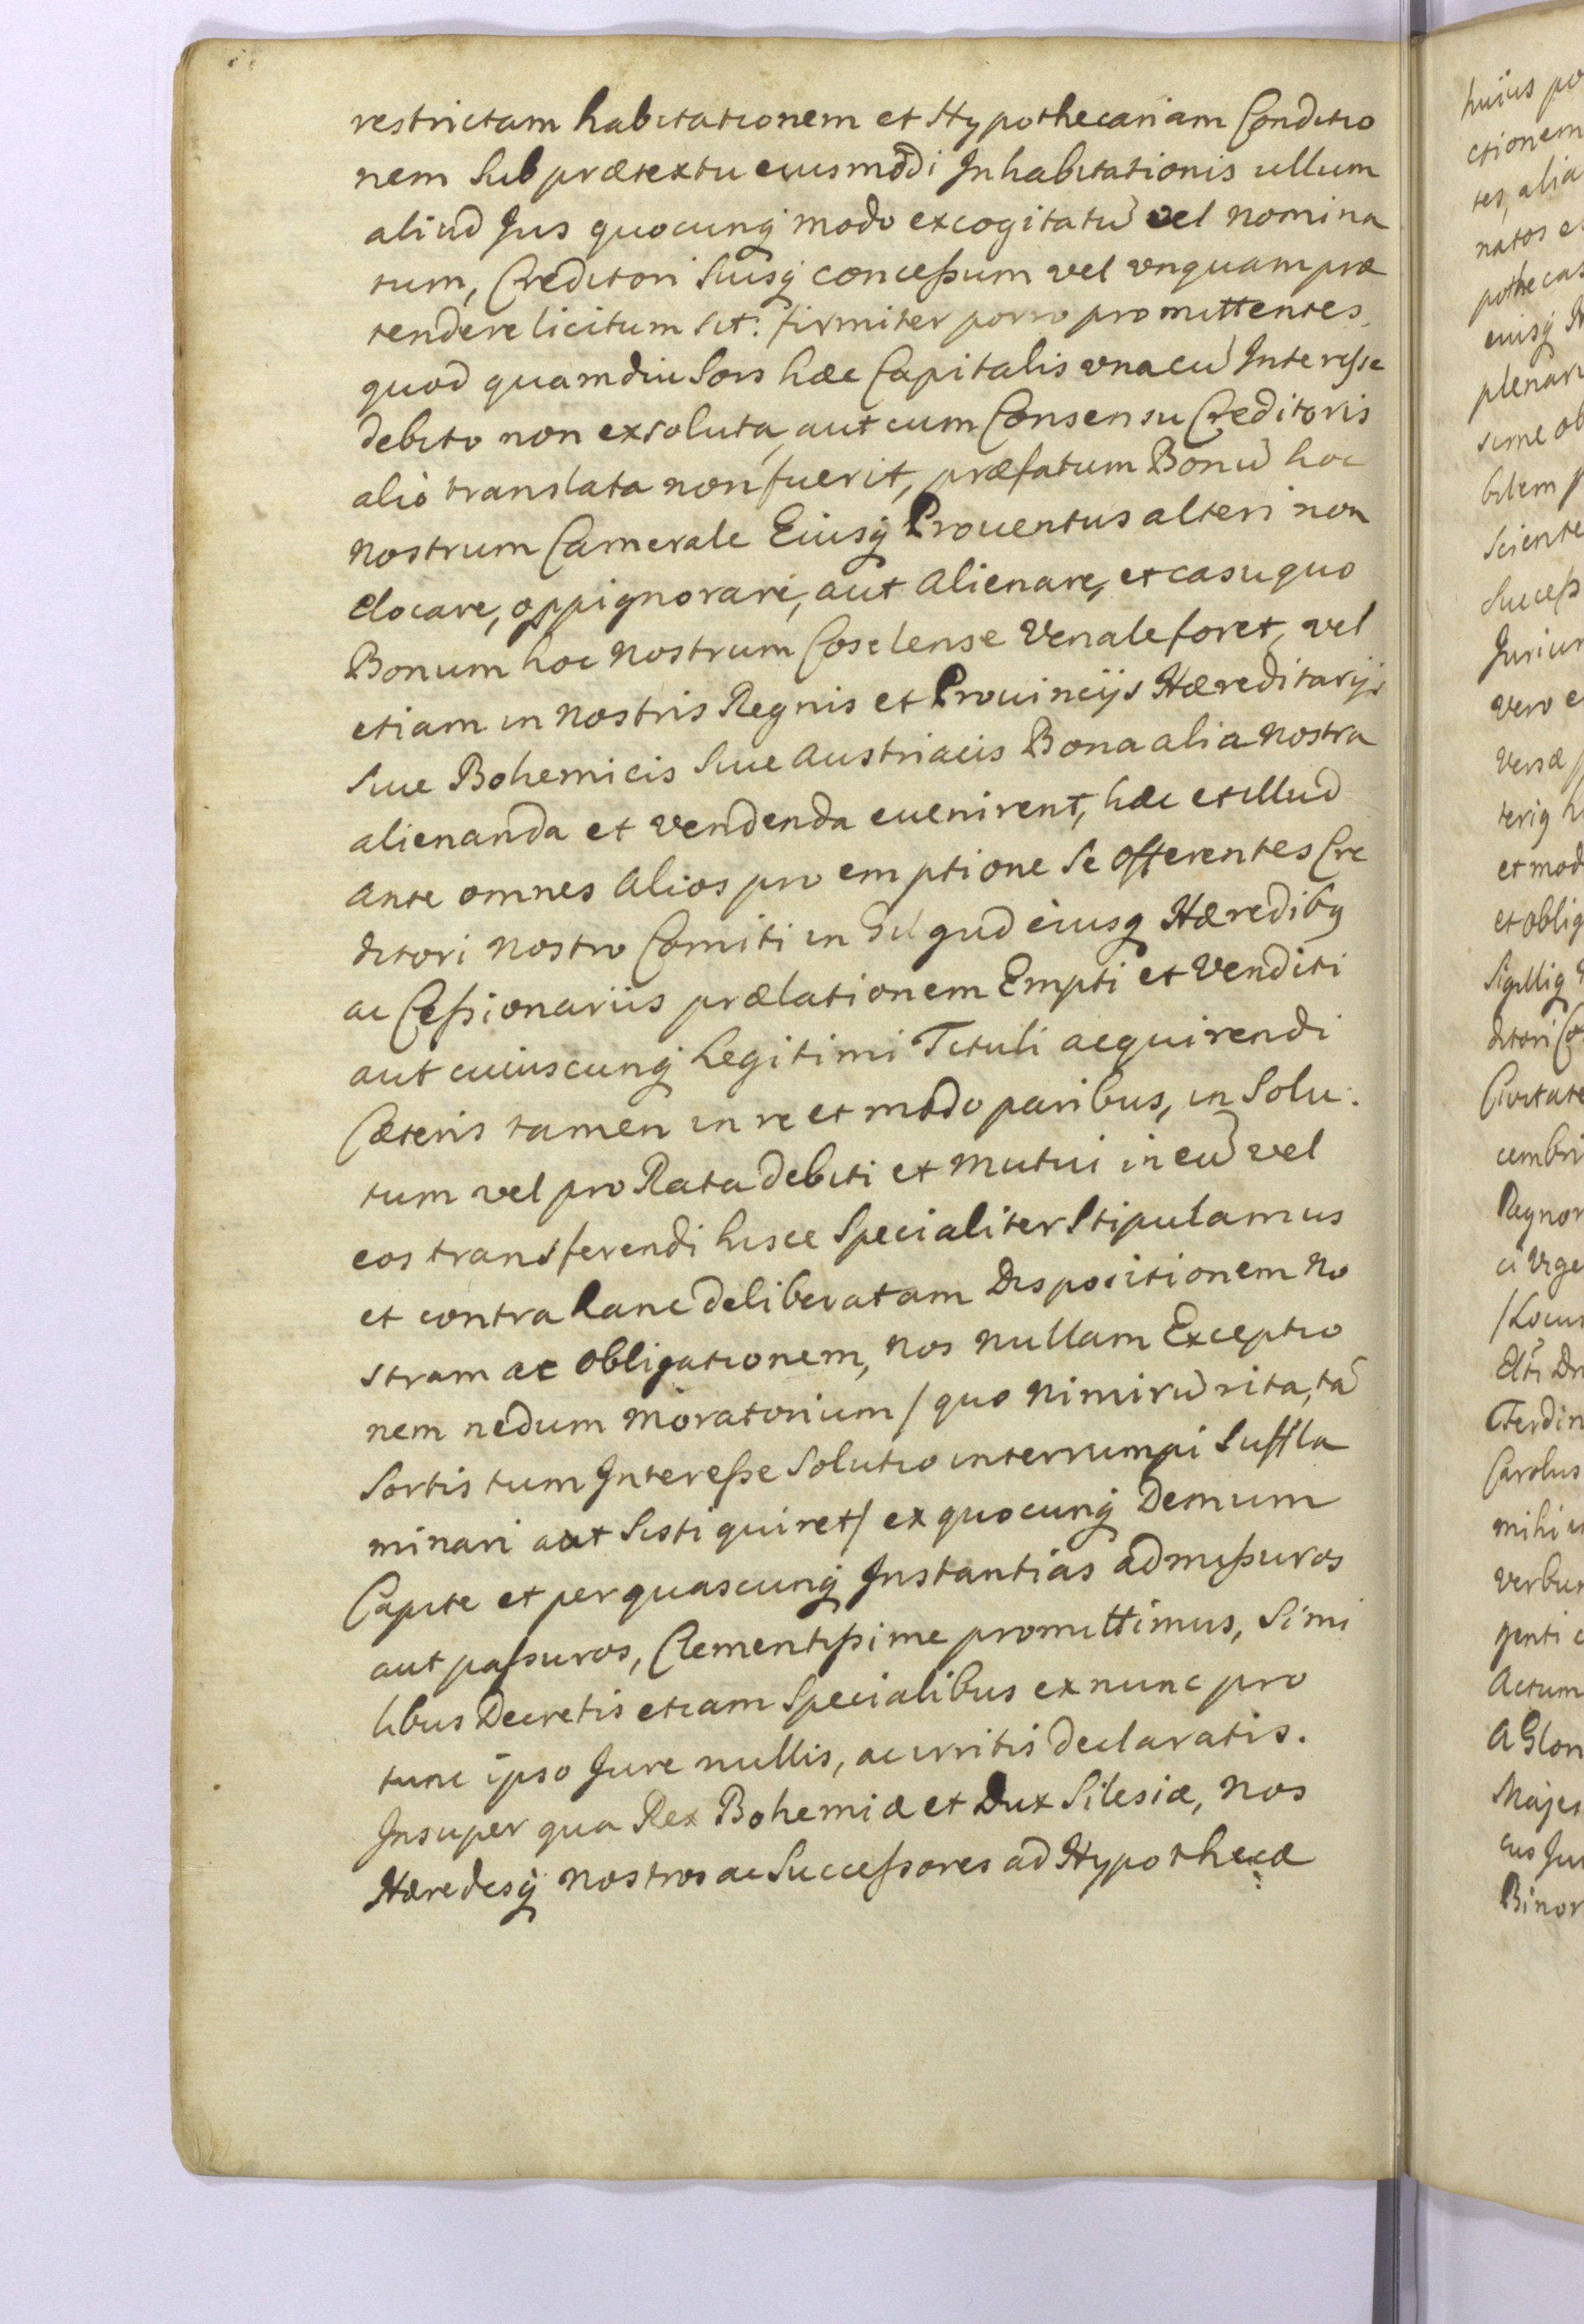 restrictam habitationem et Hypothecariam Conditio
nem sub prætextu eiusmodi Inhabitationis ullum
aliud Jus quocunq́ modo excogitatū vel nomina
tum, Creditori suisq́ concessum vel vnquam præ
tendere licitum sit: firmiter porro promittentes,
quod quamdiu Sors hæc Capitalis vna cū Interesse
debito non exsoluta, aut cum Consensu Creditoris
alio translata non fuerit, præfatum Bonū hoc
nostrum Camerale Eiusq́ Prouentus alteri non
elocare, oppignorare, aut alienare, et casu quo
Bonum hoc nostrum Coslense Venale foret, vel
etiam in nostris Regnis et Prouincijs Hæreditarijs
siue Bohemicis siue Austriacis Bona alia nostra
alienanda et vendenda euenirent, hæc et illud
ante omnes alios pro emptione se offerentes Cre
ditori nostro Comiti in eiusq Hæredibq
ac Cessionariis prælationem Empti et Venditi
aut cuiuscunq́ Legitimi Tituli acquirendi
Cæteris tamen in re et modo paribus, in Solu:
tum vel pro Rata debiti et mutui in eū vel
eos transferendi hisce Specialiter Stipulamus
et contra hanc deliberatam Dispositionem No
stram ac obligationem, nos nullam Exceptio
nem nedum moratorium / quo nimirū ita, tā
Sortis tum Interesse Solutio interrumpi Suffla
minari aut Sisti quiret / ex quocunq́ Demum
Capite et per quascunq́ Instantias admissuros
aut passuros, Clementissime promittimus, Simi
libus Decretis etiam Specialibus ex nunc pro
tunc ipso Jure nullis, ac irritis declaratis.
Insuper qua Rex Bohemiæ et Dux Silesiæ, Nos
Hæredesq́ nostros ac Successores ad Hypothecæ
huius po
ctionem
tes, alia
natos e
pothecas
eiusq́ H
plenari
sime ob
bilem p
Sciente
Success
Jurium
vero e
Versæ p
teriq h
et mod
et oblig
Sigilliq
ditori Co
Ciuitate
cembri
Regnor
ci Virge
/Locus
Ferdin
Carolus
mihi i
verbum
genti c
Actum
A Glor
Majes
eius Ju
Binor